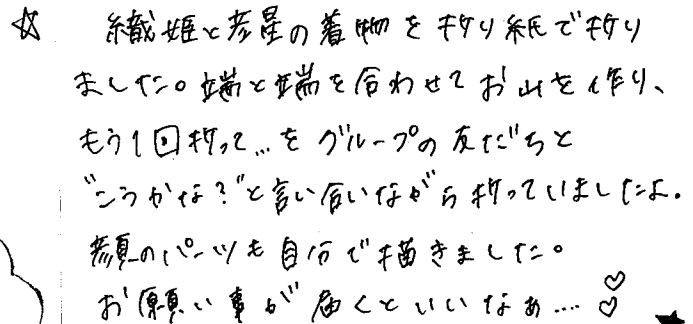 ☆ 織姫と彦星の着物を折り紙で折り
ました。端と端を合わせてお山を作り、
もう1回折って…をグループの友だちと
"こうかな?"と言い合いながら折っていましたよ。
顔のパーツも自分で描きました。
お願い事が届くといいなぁ…♡♡